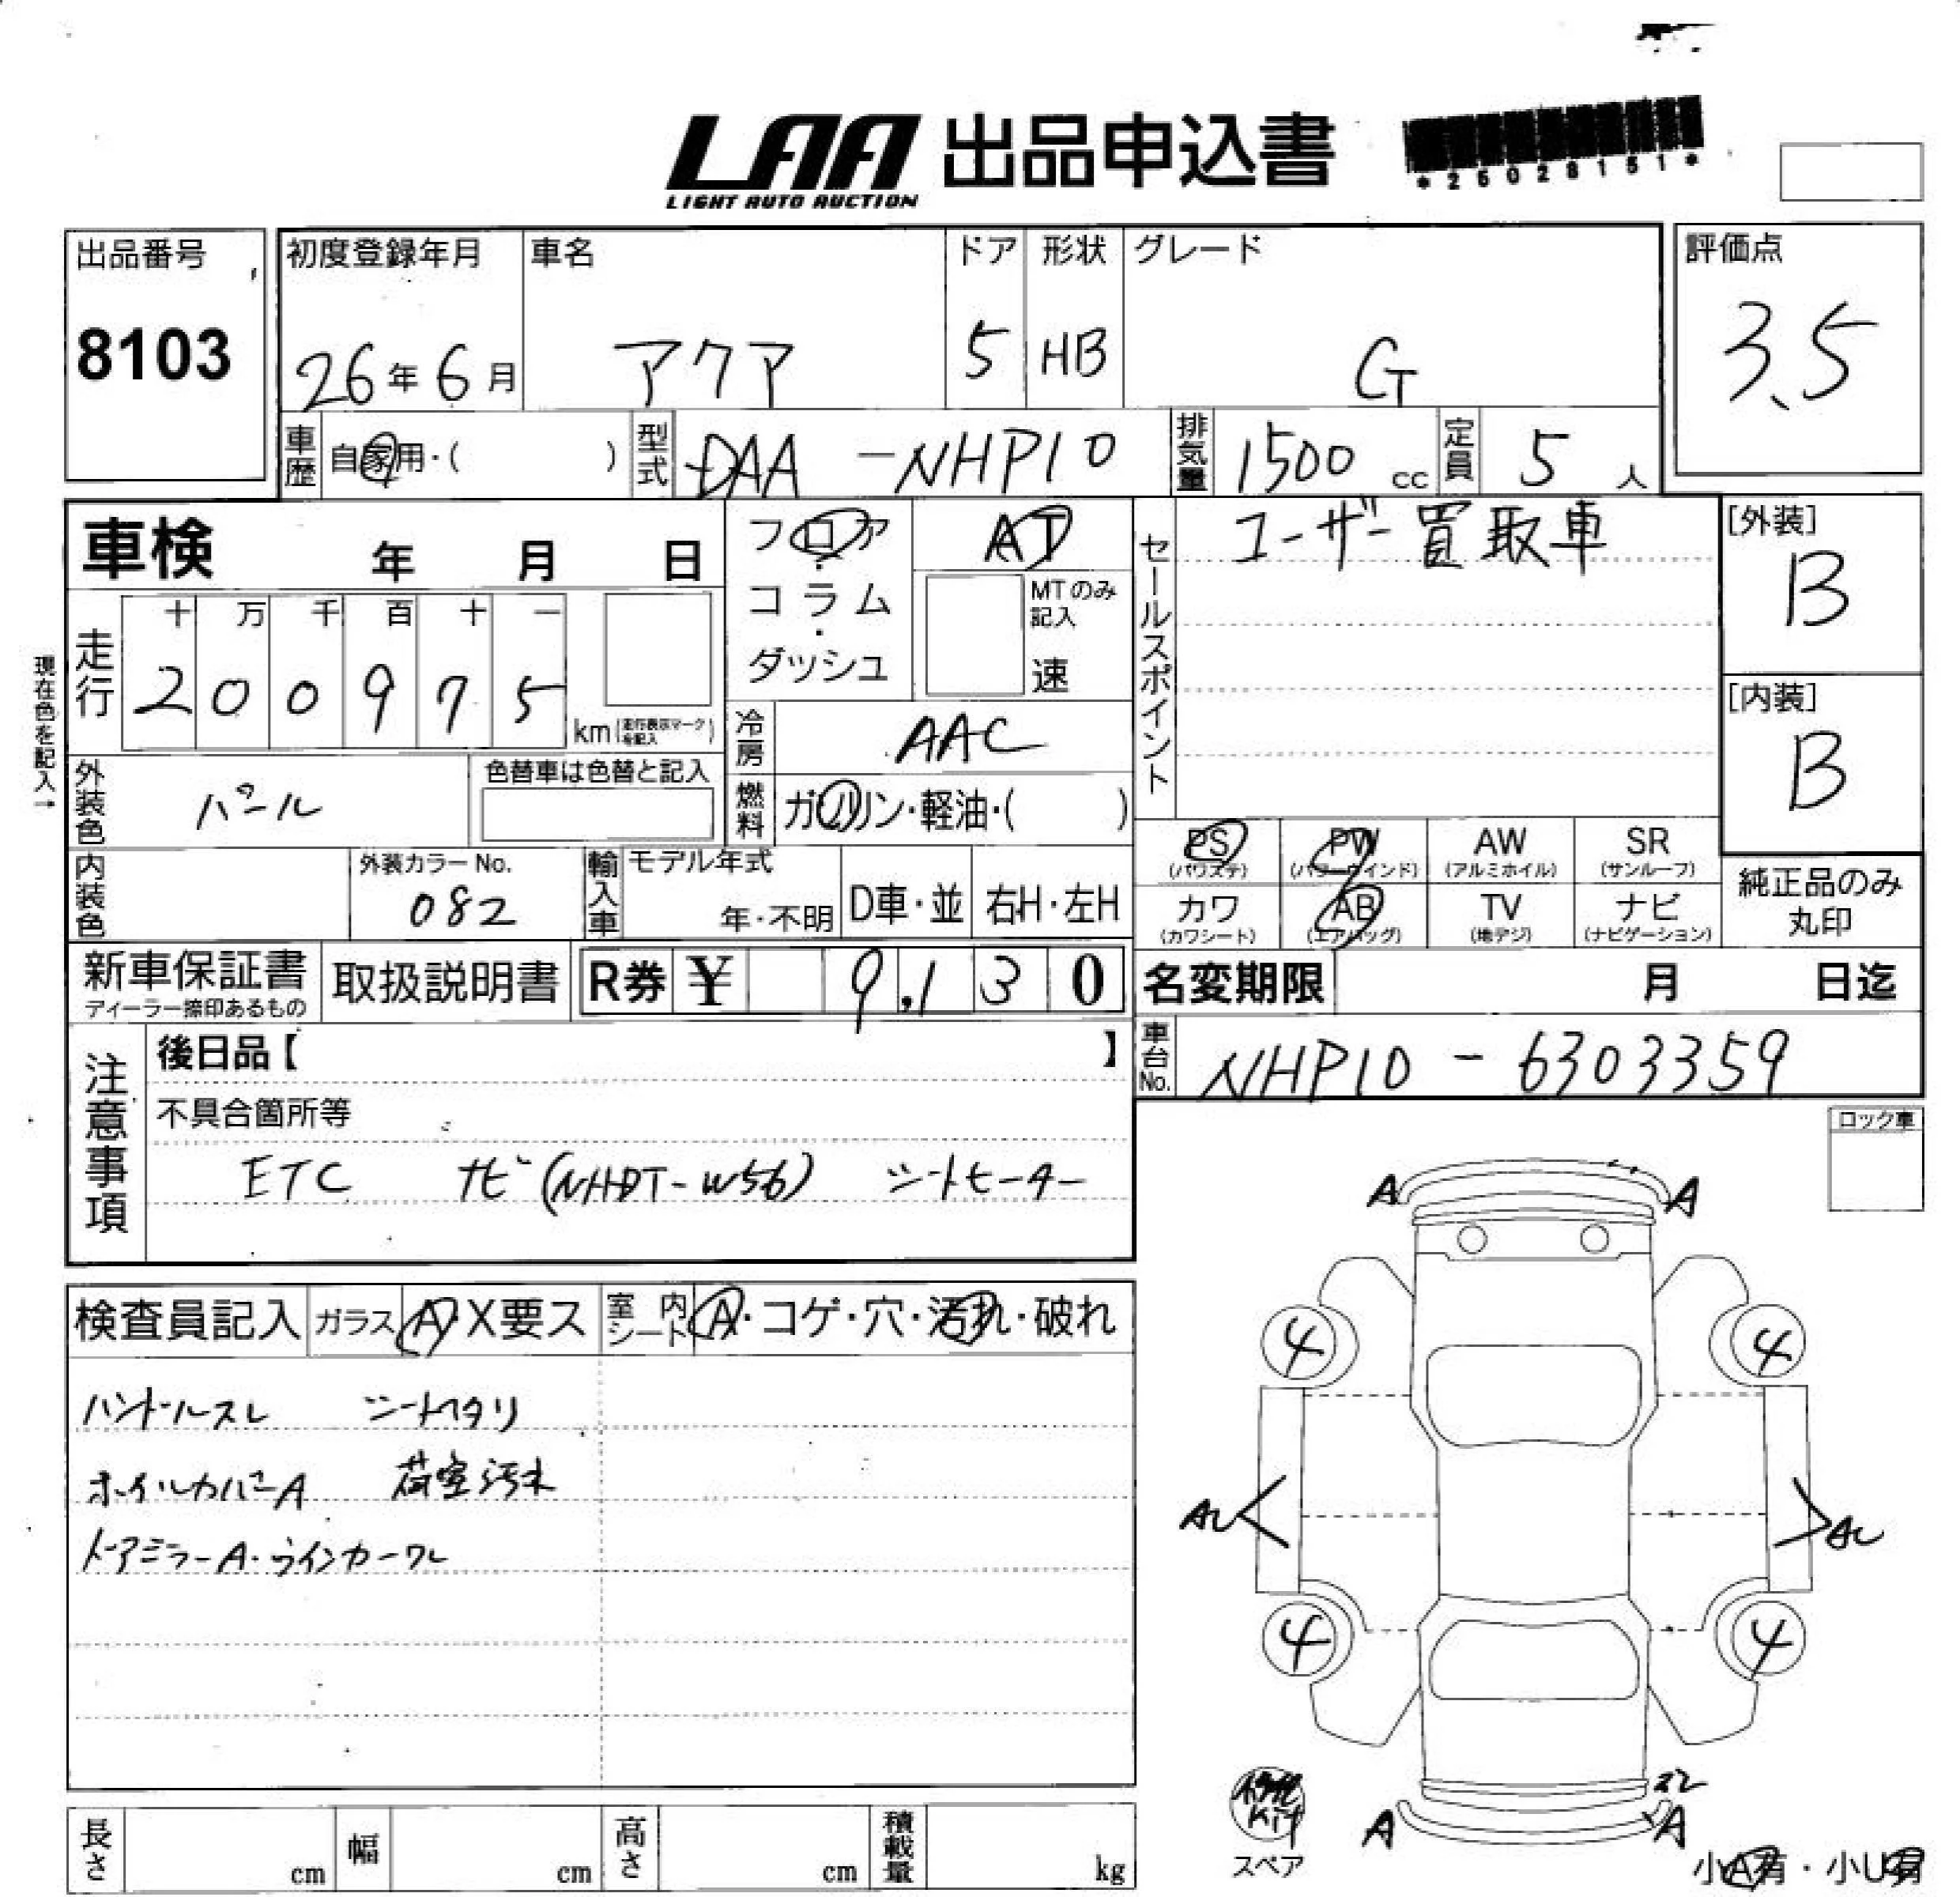 LAA 出品申込書
LIGHT AUTO AUCTION
*25028151*
出品番号 8103
初度登録年月 26年6月
車名 アクア
ドア 5
形状 HB
グレード G
評価点 3.5
車歴 自家用・( )
型式 DAA-NHP10
排気量 1500cc
定員 5人
車検 年 月 日
フロア・コラム・ダッシュ
AT
MTのみ記入
速
セールスポイント
ユーザー買取車
[外装] B
[内装] B
現在色を記入→
走行 十 万 千 百 十 一
2 0 0 9 7 5 km (走行表示マークを記入)
冷房 AAC
外装色 パール
色替車は色替と記入
燃料 ガソリン・軽油・( )
PS (パワステ) PW (パワーウインド) AW (アルミホイル) SR (サンルーフ)
カワ (カワシート) AB (エアバッグ) TV (地デジ) ナビ (ナビゲーション)
純正品のみ丸印
内装色
外装カラーNo. 082
輸入車 モデル年式 年・不明 D車・並 右H・左H
新車保証書
ディーラー捺印あるもの
取扱説明書
R券 ¥ 9,130
名変期限 月 日迄
車台No. NHP10-6303359
注意事項
後日品【 】
不具合箇所等
ETC ナビ(NHDT-W56) シートヒーター
ロック車
検査員記入 ガラス A・X要ス 室内シート A・コゲ・穴・汚れ・破れ
ハンドルスレ シートヘタリ
ホイルカバーA 荷室汚れ
ドアミラーA・ウインカーワレ
A A
4 4
AU AU
4 4
スレ
A A
Kit
スペア
小A有・小U有
長さ cm 幅 cm 高さ cm 積載量 kg